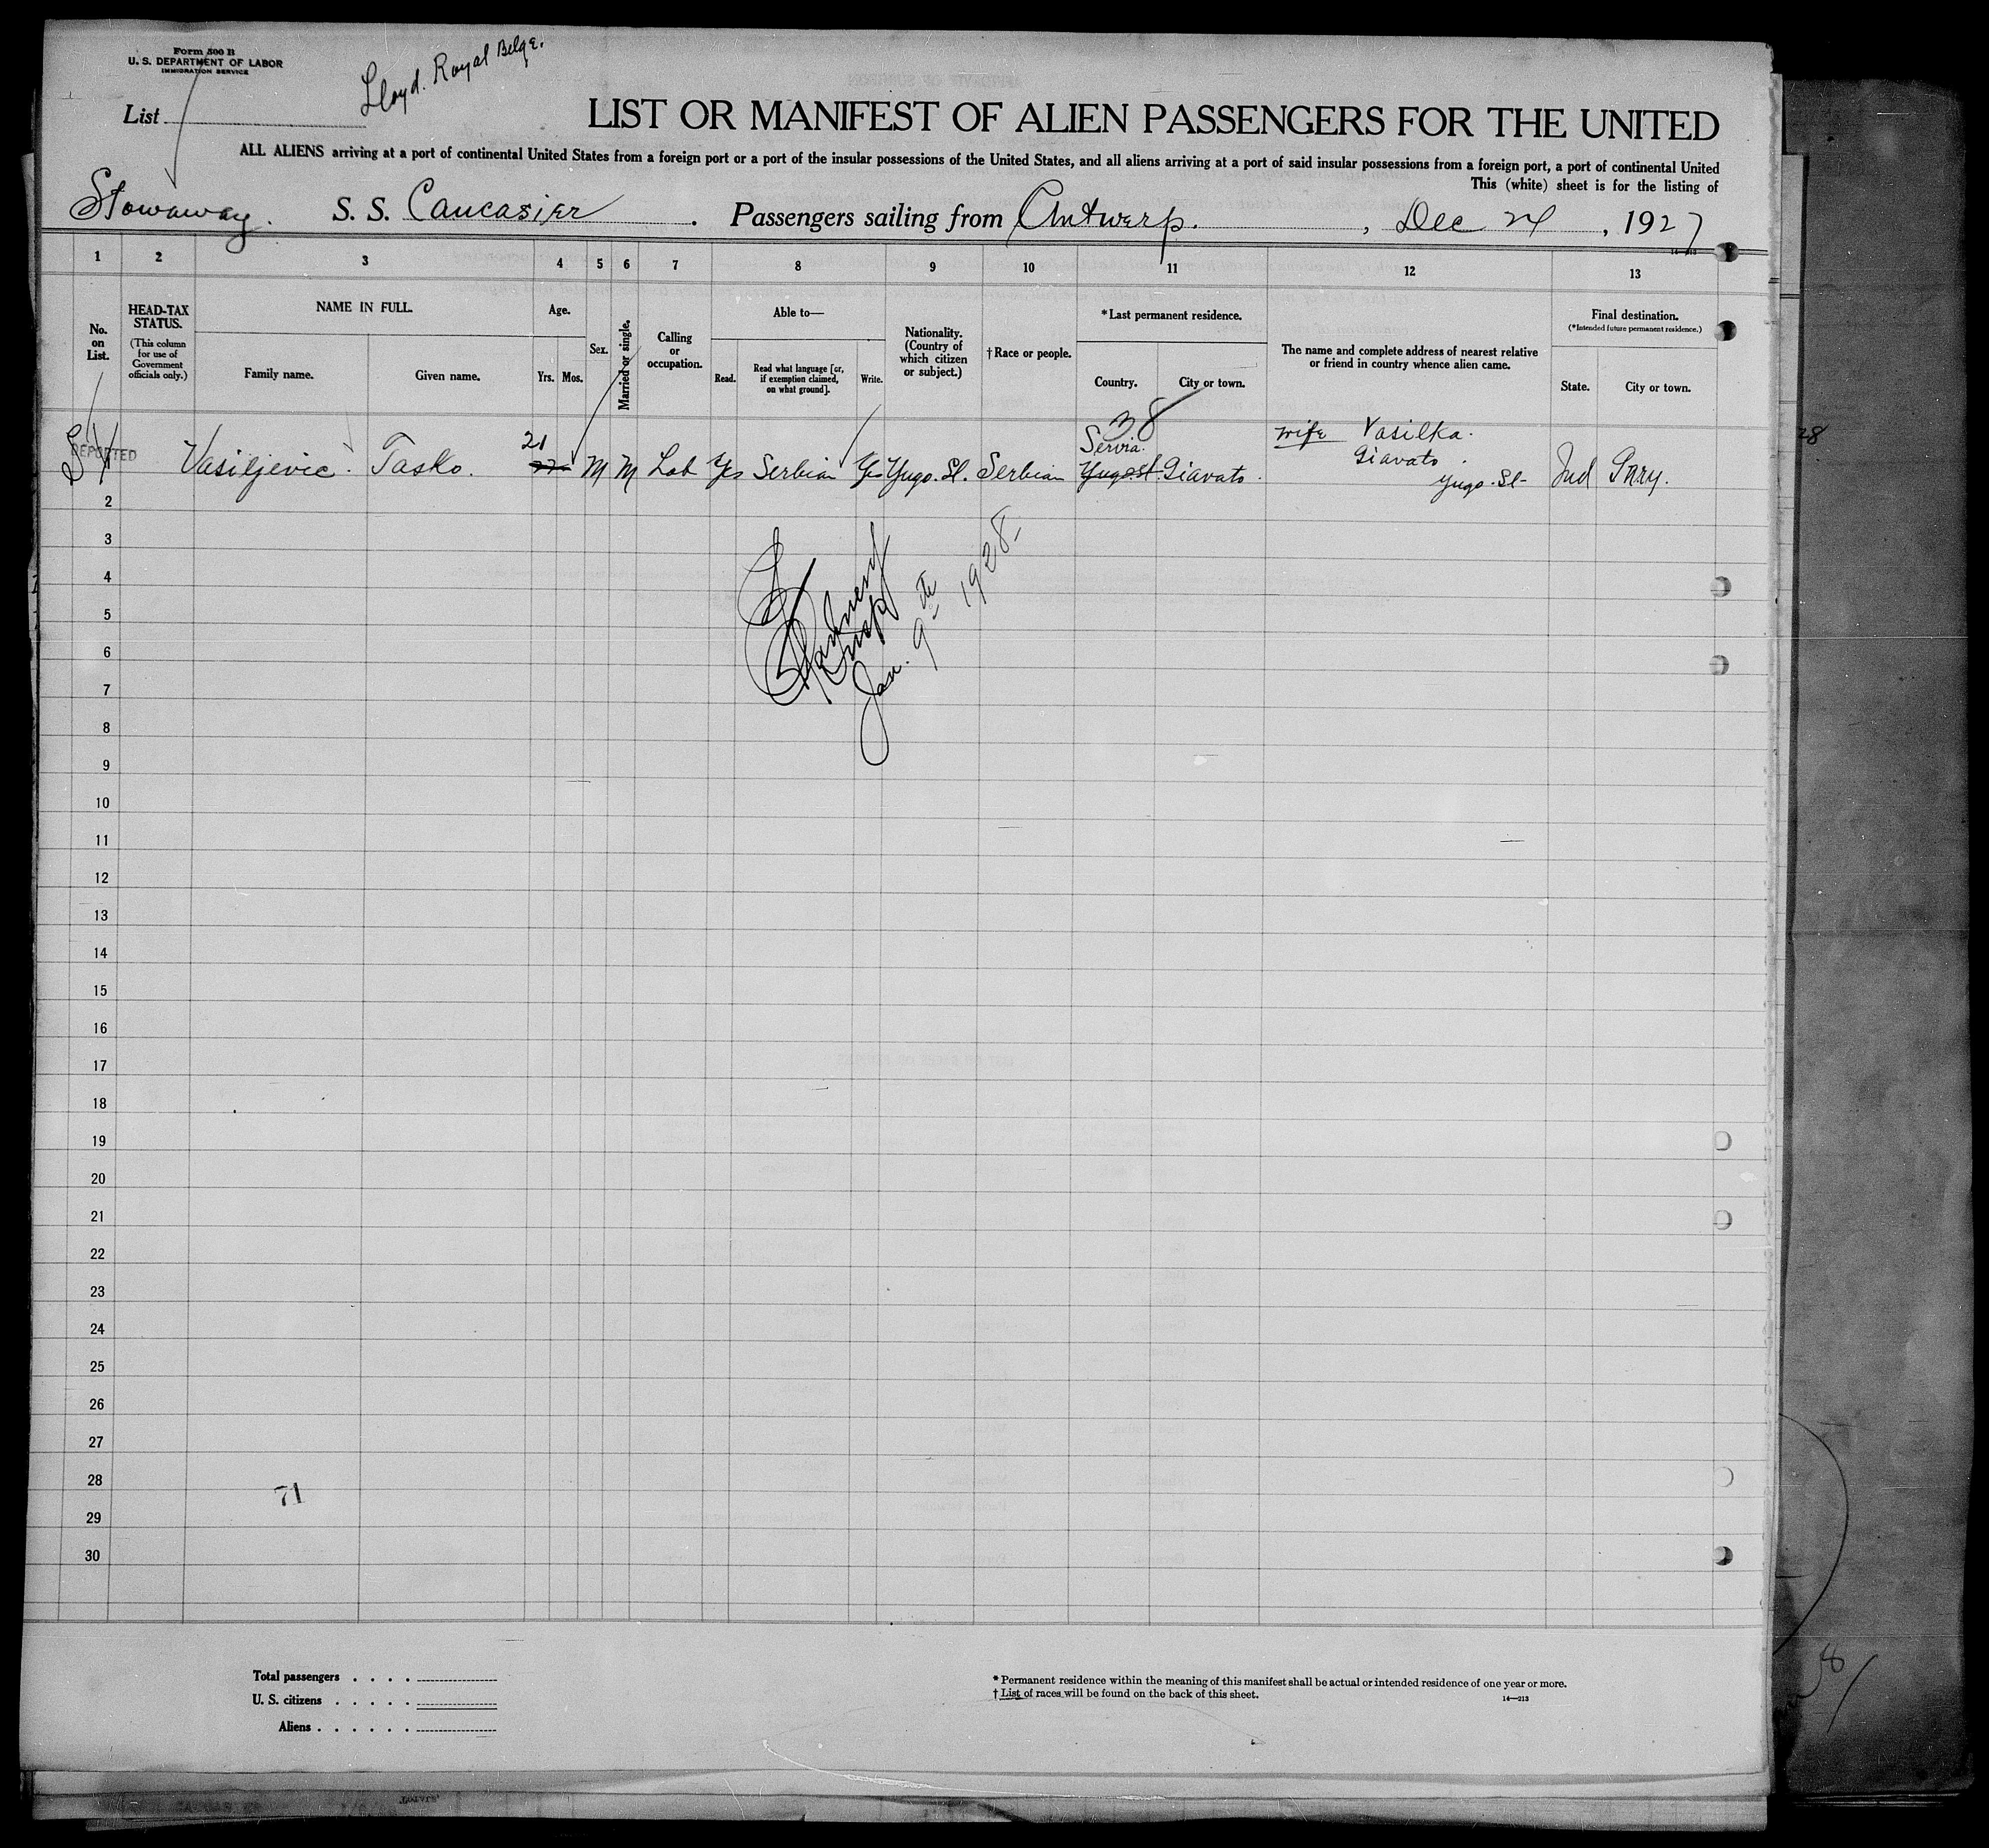 Form 500 B
U. S. DEPARTMENT OF LABOR
IMMIGRATION SERVICE
Lloyd. Royal Belge.
List
LIST OR MANIFEST OF ALIEN PASSENGERS FOR THE UNITED
ALL ALIENS arriving at a port of continental United States from a foreign port or a port of the insular possessions of the United States, and all aliens arriving at a port of said insular possessions from a foreign port, a port of continental United
This (white) sheet is for the listing of
Stowaway. S. S. Caucasier. Passengers sailing from Antwerp., Dec 24, 1927
14—213
1 2 3 4 5 6 7 8 9 10 11 12 13
No. on List.
HEAD-TAX STATUS.
(This column for use of Government officials only.)
NAME IN FULL.
Family name. Given name.
Age.
Yrs. Mos.
Sex.
Married or single.
Calling or occupation.
Able to—
Read. Read what language [or, if exemption claimed, on what ground]. Write.
Nationality. (Country of which citizen or subject.)
†Race or people.
*Last permanent residence.
Country. City or town.
The name and complete address of nearest relative or friend in country whence alien came.
Final destination.
(*Intended future permanent residence.)
State. City or town.
38
DEPORTED
Vasiljevic. Tasko. 21 M M Lab Yes Serbian Yes Yugo. Sl. Serbian Servia. Yugo.sl. Giavato. wife Vasilka.
Giavato.
Yugo. Sl- Ind Gary.
2
3
4
5
6
7
8
9
10
11
12
13
14
15
16
17
18
19
20
21
22
23
24
25
26
27
28
29
30
Insp
Jan. 9th 1928-
71
Total passengers . . . .
U. S. citizens . . . . .
Aliens . . . . . .
* Permanent residence within the meaning of this manifest shall be actual or intended residence of one year or more.
† List of races will be found on the back of this sheet.
14—213
28
8